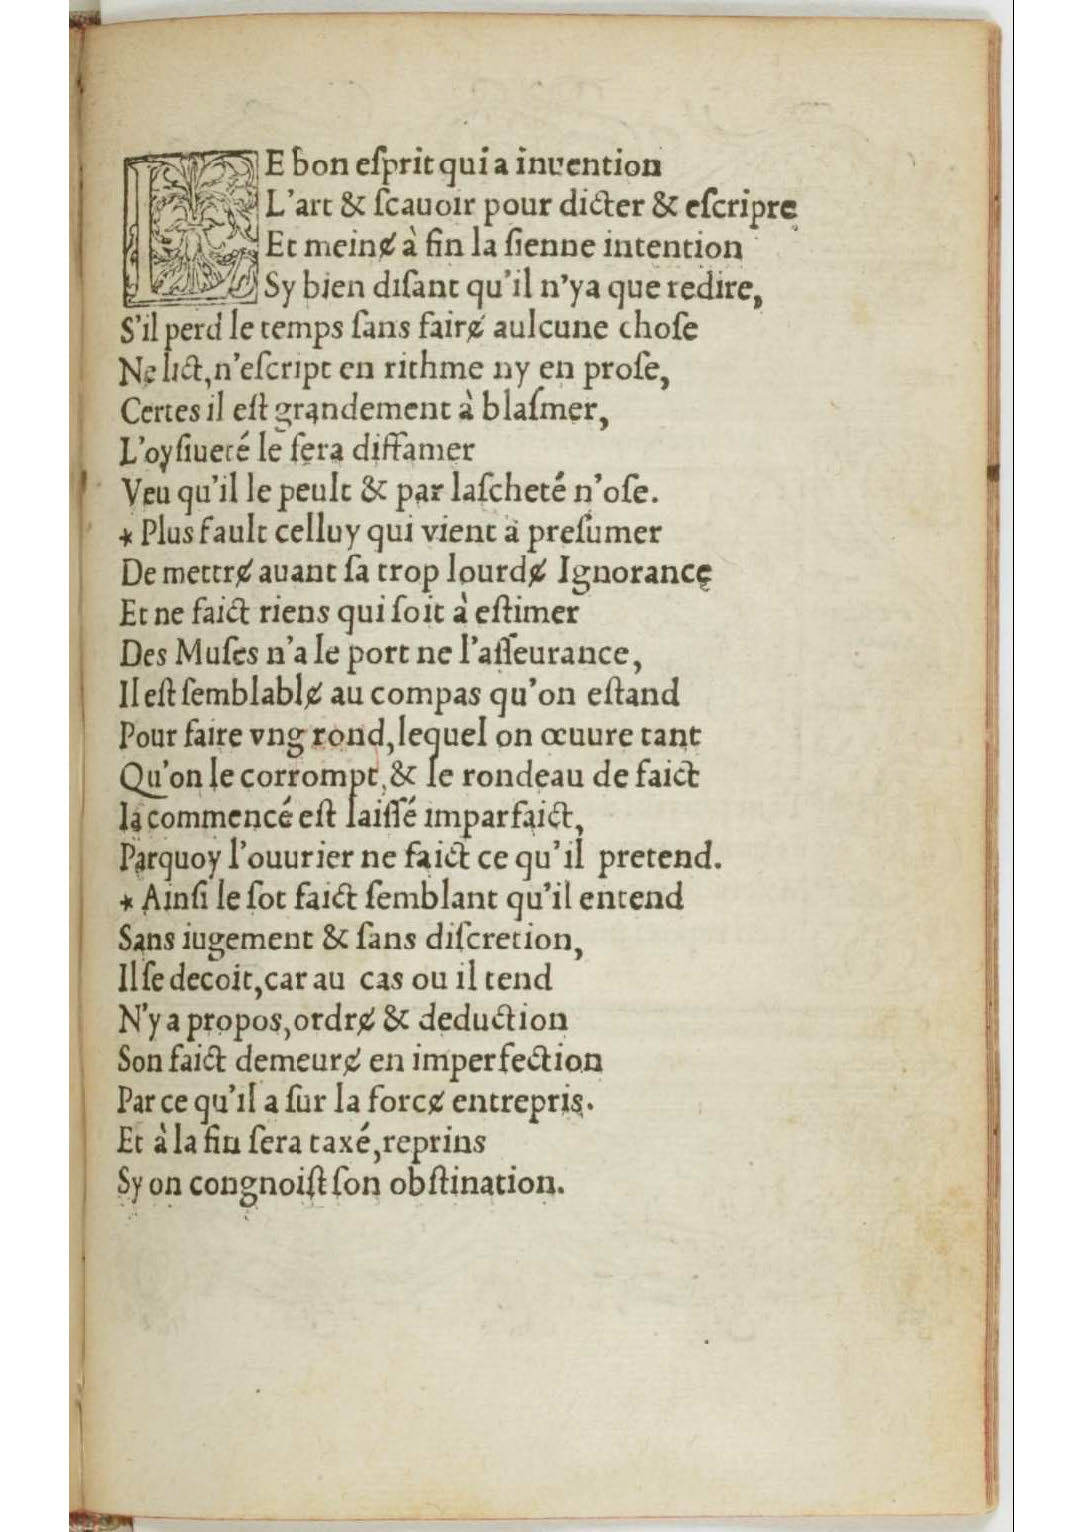 LE bon eſprit qui a inuention
L'art & ſcauoir pour dicter & eſcripre
Et meinɇ à fin la ſienne intention
Sy bien diſant qu'il n'ya que redire,
S'il perd le temps ſans fairɇ aulcune choſe
Ne lict, n'eſcript en rithme ny en proſe,
Certes il eſt grandement à blaſmer,
L'oyſiueté le fera diffamer
Veu qu'il le peult & par laſcheté n'oſe.
* Plus fault celluy qui vient à preſumer
De mettrɇ auant ſa trop lourdɇ Ignorance
Et ne faict riens qui ſoit à eſtimer
Des Muſes n'a le port ne l'aſſeurance,
Il eſt ſemblablɇ au compas qu'on eſtand
Pour faire vng rond, lequel on œuure tant
Qu'on le corrompt, & le rondeau de faict
Ia commencé eſt laiſſé imparfaict,
Parquoy l'ouurier ne faict ce qu'il pretend.
* Ainſi le ſot faict ſemblant qu'il entend
Sans iugement & ſans diſcretion,
Il ſe decoit, car au cas ou il tend
N'y a propos, ordrɇ & deduction
Son faict demeurɇ en imperfection
Par ce qu'il a ſur la forcɇ entrepris.
Et à la fin ſera taxé, reprins
Sy on congnoiſt ſon obſtination.